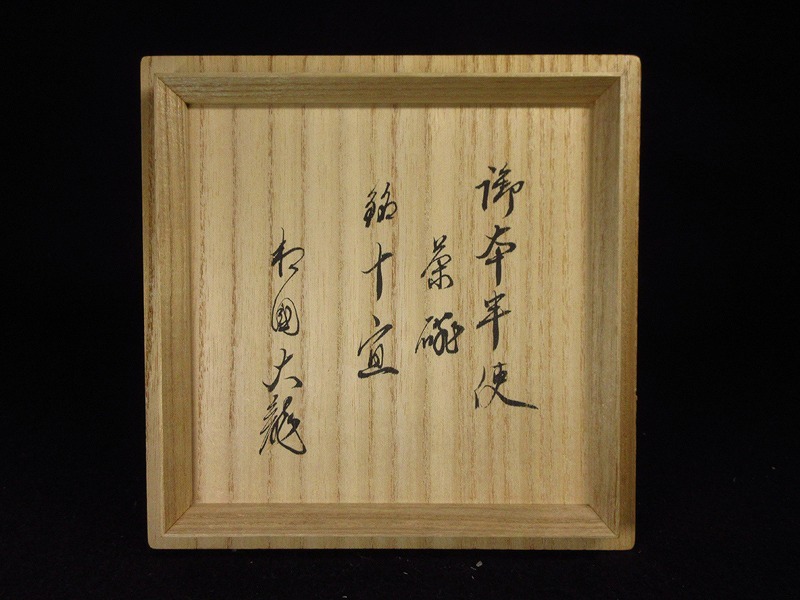 御本半使
茶碗
銘十宜
相国大龍